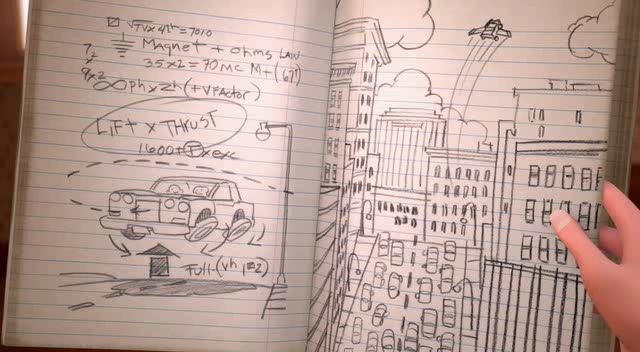 √TV x 4lt = 7010
Magnet + ohms LAW
35 x 2 = 70 mc M + (.67)
∞ ph x zh (+ V FActor)
LiFt x THRUST
1600 + F x exc
Full - (Vh